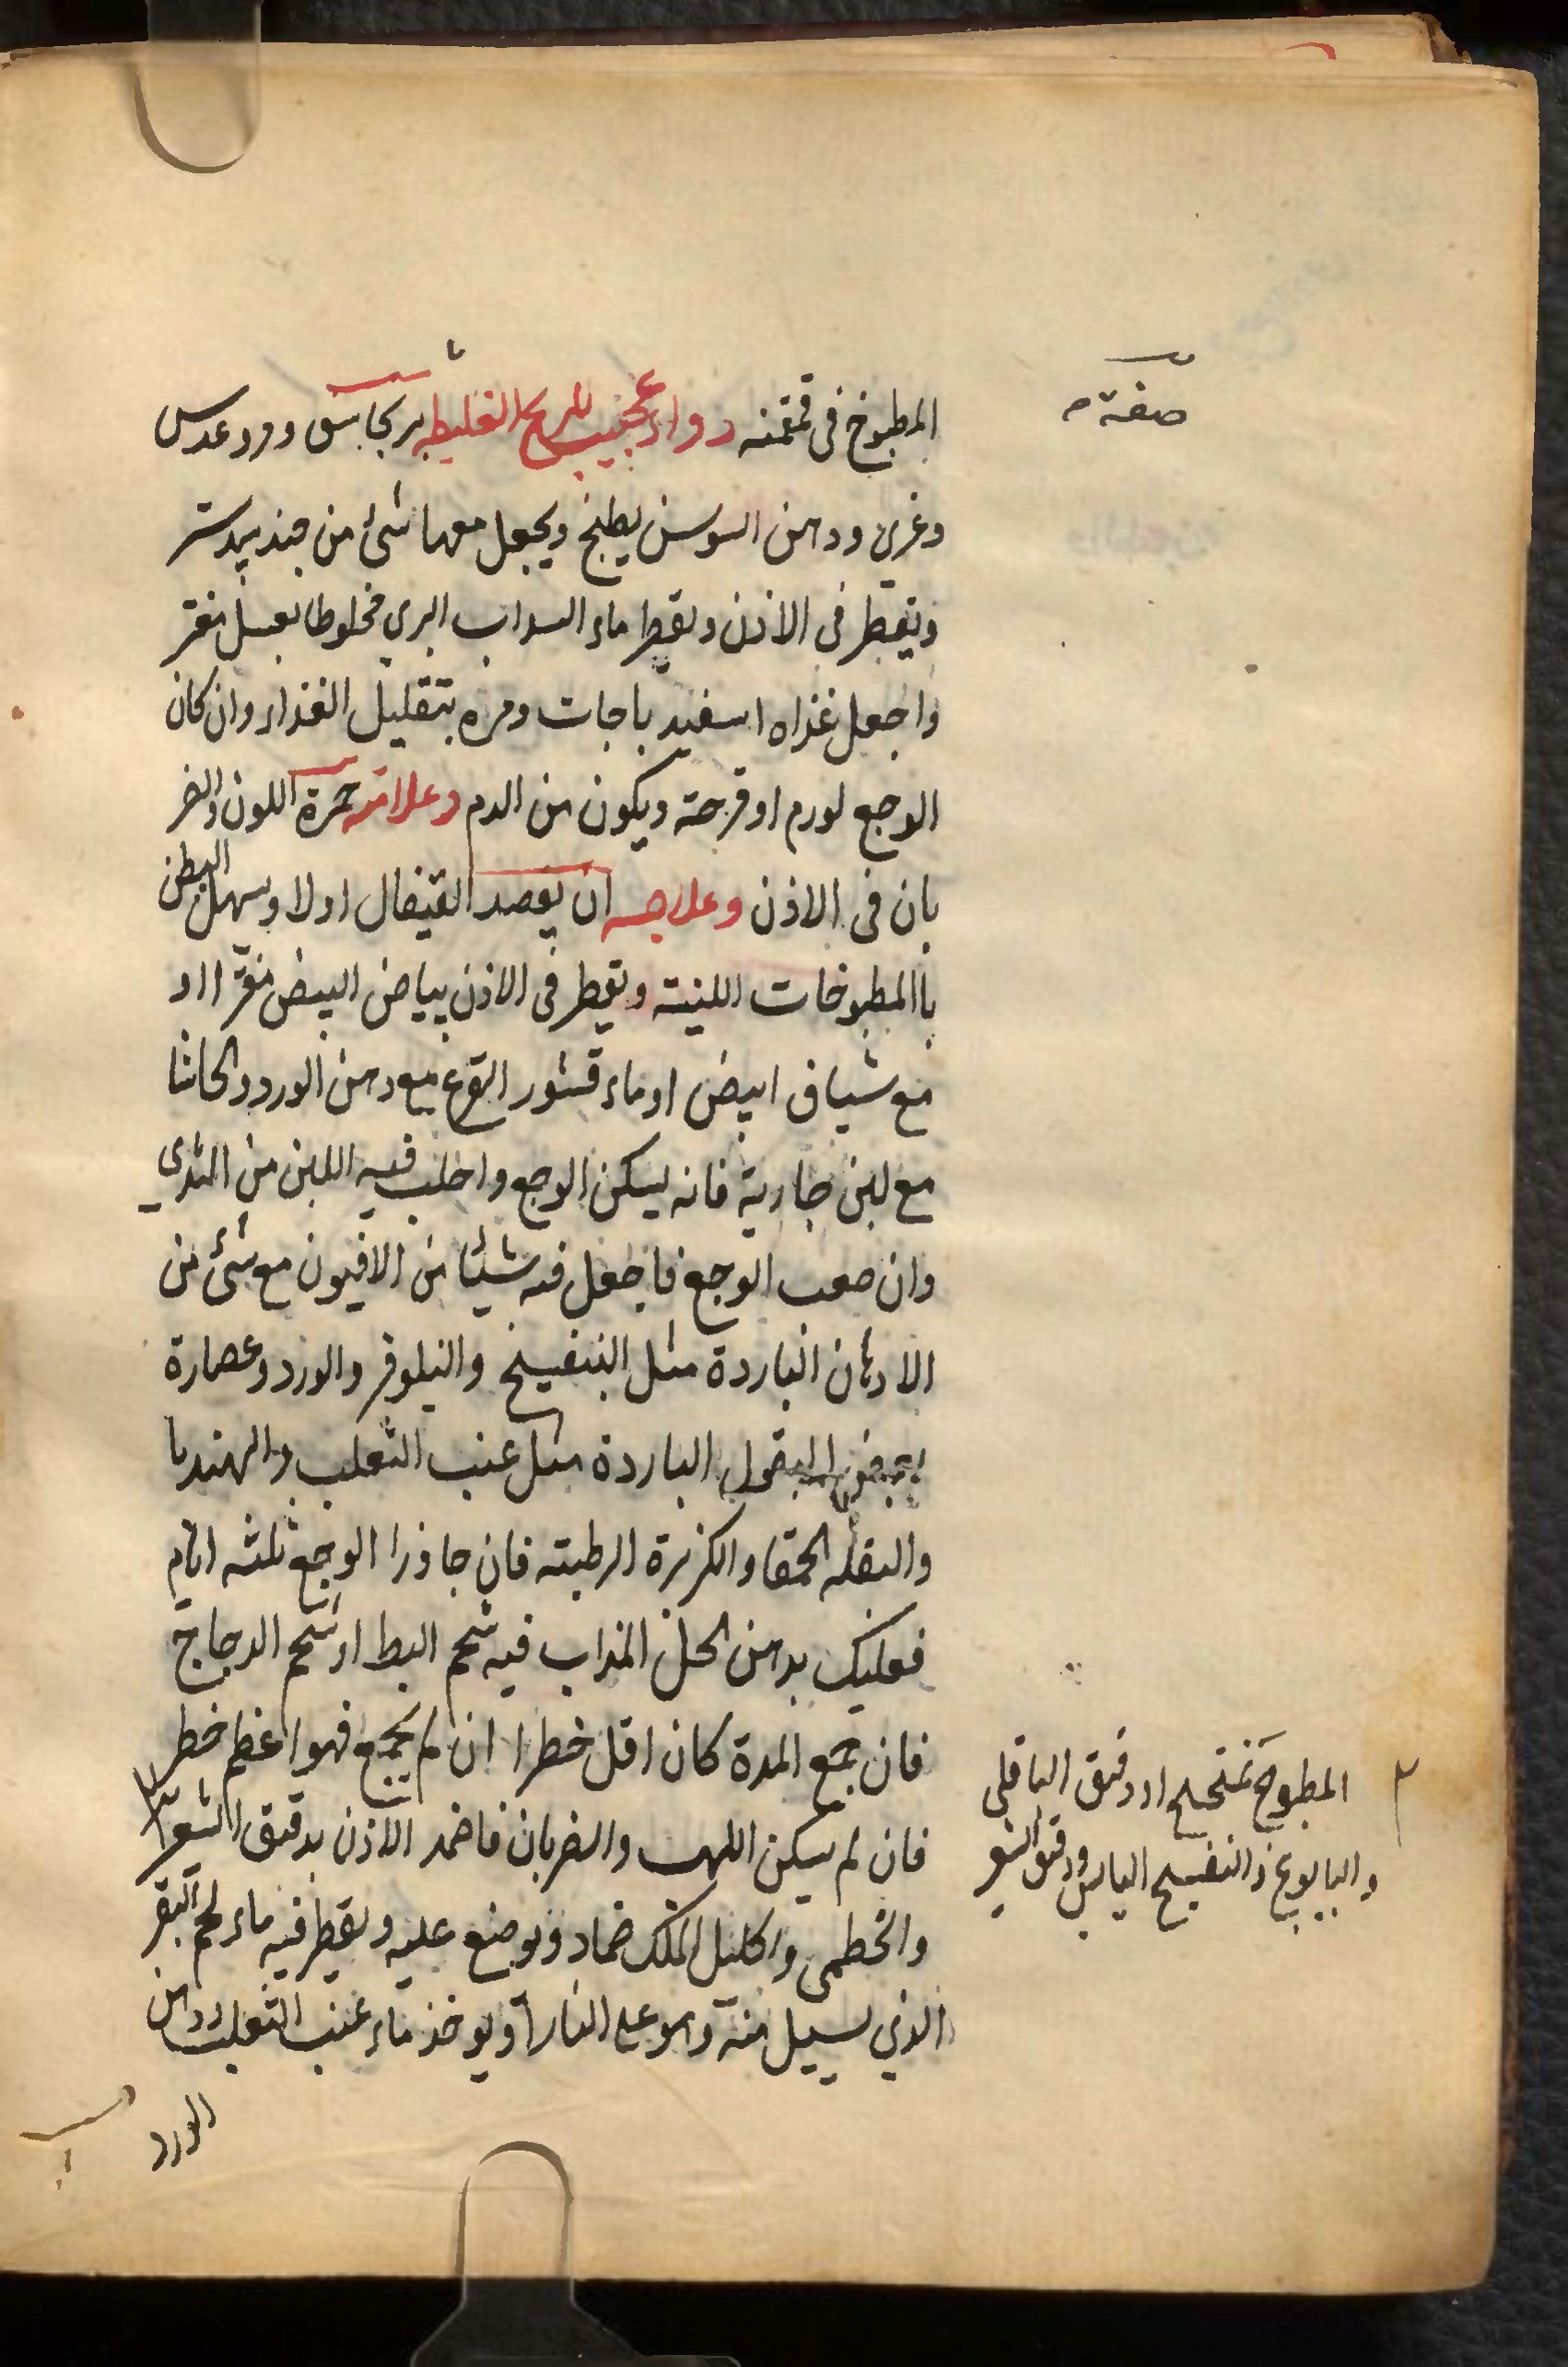 صفة
المطبوخ فى قمقمة دواء عجيب للريح الغليظه برنجاسف وورد عدس
وغرى ودهن السوسن يطبخ ويجعل معها شئ من جندبيدستر
ويقطر فى الاذن ويقطر ماء السداب البري مخلوطا بعسل مفتر
واجعل غذاه اسفيد باجات ومره بتقليل الغذاء وان كان
الوجع لورم او قرحة ويكون من الدم وعلامته حمرة اللون والضر
بان فى الاذن وعلاجه ان يفصد القيفال اولا ويسهل البطن
باالمطبوخات اللينة ويقطر فى الاذن بياض البيض مفترا او
مع شياف ابيض او ماء قشور القرع مع دهن الورد والحاشا
مع لبن جارية فانه يسكن الوجع واحلب فيه اللبن من الثدي
وان صعب الوجع فاجعل فيه شيئا من الافيون مع شئ من
الادهان الباردة مثل البنفسج والنيلوفر والورد وعصارة
بعض البقول الباردة مثل عنب الثعلب والهندبا
والبقله الحمقا والكزبرة الرطبته فان جاوزا الوجع ثلثه ايام
فعليك بدهن الحل المذاب فيه شحم البط او شحم الدجاج
فان جمع المدة كان اقل خطرا ان لم يجمع فهو اعظم خطر
فان لم يسكن اللهب والضربان فاضمد الاذن بدقيق الشعير
والخطمى واكليل الملك ضماد ويوضع عليه ويقطر فيه ماء لحم البقر
الذي يسيل منه وهو على النار او يوخذ ماء عنب الثعلب ودهن
الورد
المطبوخ بمفتحج او دقيق الباقلى
والبابونج والبنفسج اليابس ودقيق الشعير